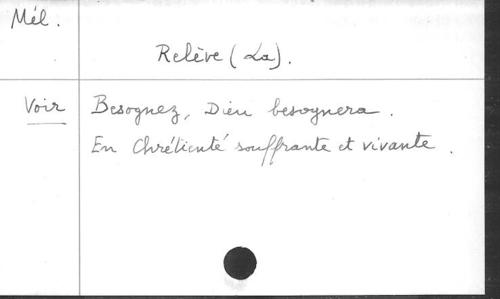 Mél.
Relève (La).
Voir Besognez, Dieu besognera.
En Chrétienté souffrante et vivante.